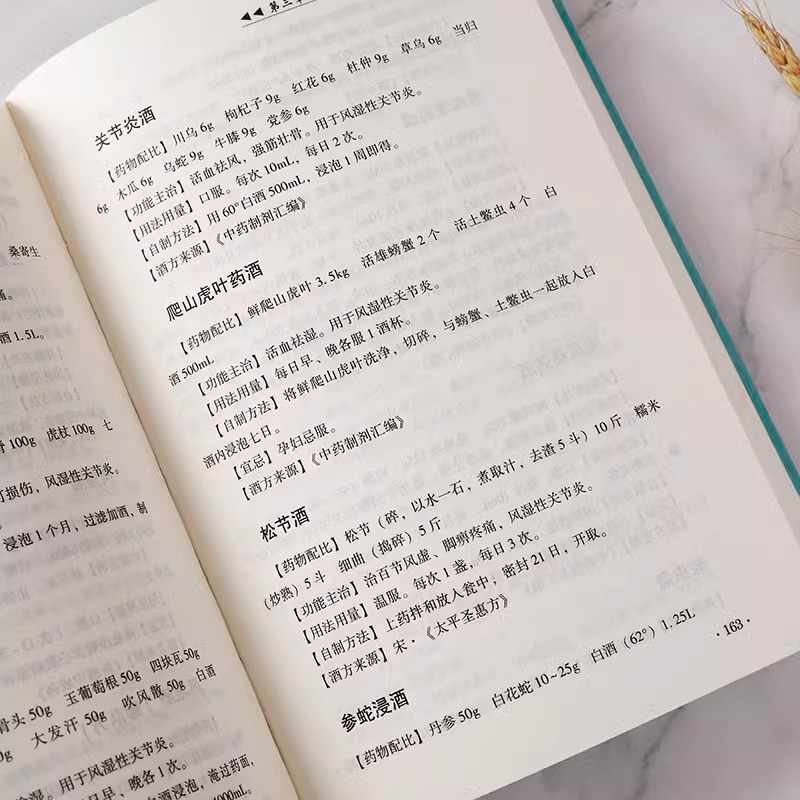 桑寄生
酒 1.5L。
100g 虎杖 100g 七
打损伤，风湿性关节炎。
浸泡 1 个月，过滤加酒，制
骨头 50g 玉葡萄根 50g 四块瓦 50g
大发汗 50g 吹风散 50g 白酒
湿。用于风湿性关节炎。
日早、晚各 1 次。
酒浸泡，淹过药面，
000mL。
◀◀ 第三
关节炎酒
【药物配比】川乌 6g 枸杞子 9g 红花 6g 杜仲 9g 草乌 6g 当归
6g 木瓜 6g 乌蛇 9g 牛膝 9g 党参 6g
【功能主治】活血祛风，强筋壮骨。用于风湿性关节炎。
【用法用量】口服。每次 10mL，每日 2 次。
【自制方法】用 60°白酒 500mL，浸泡 1 周即得。
【酒方来源】《中药制剂汇编》
爬山虎叶药酒
【药物配比】鲜爬山虎叶 3.5kg 活雄螃蟹 2 个 活土鳖虫 4 个 白
酒 500mL
【功能主治】活血祛湿。用于风湿性关节炎。
【用法用量】每日早、晚各服 1 酒杯。
【自制方法】将鲜爬山虎叶洗净，切碎，与螃蟹、土鳖虫一起放入白
酒内浸泡七日。
【宜忌】孕妇忌服。
【酒方来源】《中药制剂汇编》
松节酒
【药物配比】松节（碎，以水一石，煮取汁，去渣 5 斗）10 斤 糯米
（炒熟）5 斗 细曲（捣碎）5 斤
【功能主治】治百节风虚、脚痹疼痛，风湿性关节炎。
【用法用量】温服。每次 1 盏，每日 3 次。
【自制方法】上药拌和放入瓮中，密封 21 日，开取。
【酒方来源】宋·《太平圣惠方》
参蛇浸酒
【药物配比】丹参 50g 白花蛇 10～25g 白酒（62°）1.25L
·163·